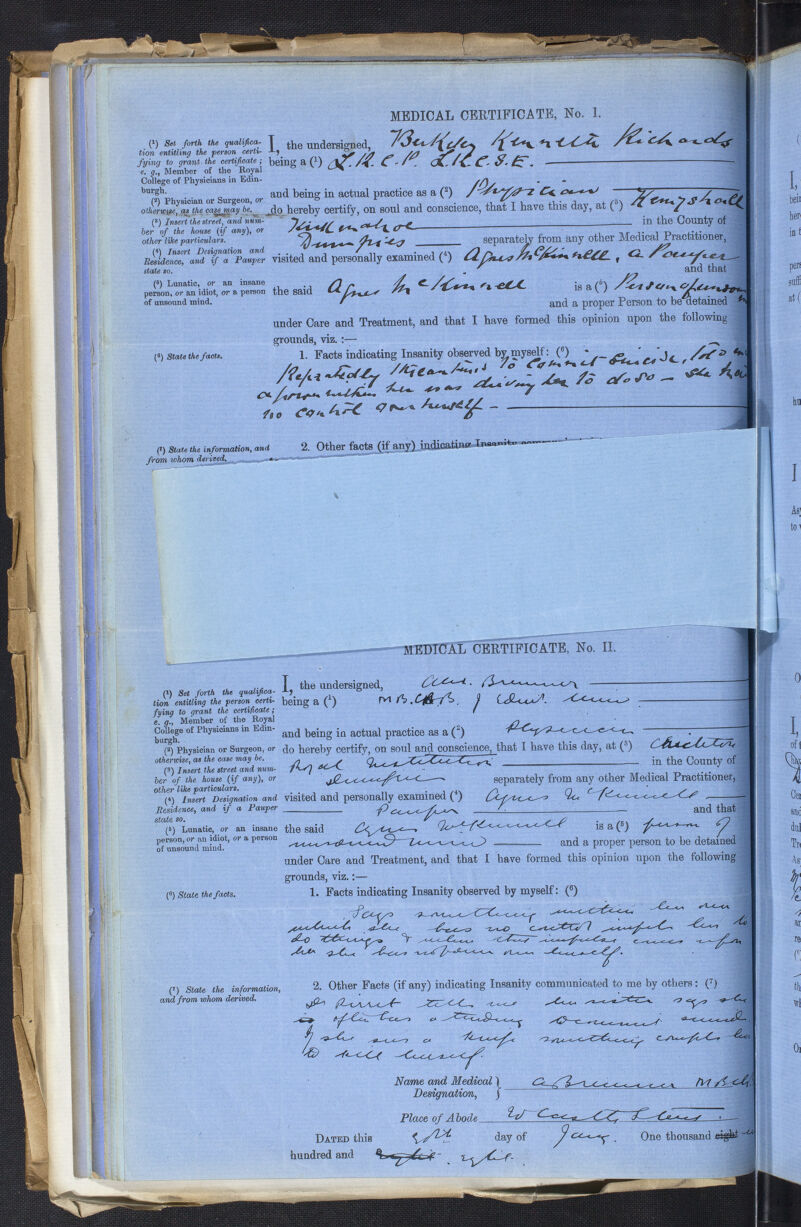 MEDICAL CERTIFICATE, No. I.
(¹) Set forth the qualifica-
tion entitling the person certi-
fying to grant the certificate;
e. g., Member of the Royal
College of Physicians in Edin-
burgh.
(²) Physician or Surgeon, or
otherwise, as the case may be.
(³) Insert the street, and num-
ber of the house (if any), or
other like particulars.
(⁴) Insert Designation and
Residence, and if a Pauper
state so.
(⁵) Lunatic, or an insane
person, or an idiot, or a person
of unsound mind.
I, the undersigned, Berkeley Kenneth Richards
being a (¹) L.R.C.P. L.R.C.S.E.
and being in actual practice as a (²) Physician
do hereby certify, on soul and conscience, that I have this day, at (³) Hempshall
Kirkmahoe in the County of
Dumfries separately from any other Medical Practitioner,
visited and personally examined (⁴) Agnes McKinnell, a Pauper
and that
the said Agnes McKinnell is a (⁵) Person of unsound
and a proper Person to be detained
under Care and Treatment, and that I have formed this opinion upon the following
grounds, viz. :—
(⁶) State the facts.
1. Facts indicating Insanity observed by myself: (⁶)
Repeatedly threatened to commit suicide, told me
a power within her was driving her to do so – she had
no control over herself –
(⁷) State the information, and
from whom derived.
2. Other facts (if any) indicating Insanity
MEDICAL CERTIFICATE, No. II.
(¹) Set forth the qualifica-
tion entitling the person certi-
fying to grant the certificate;
e. g., Member of the Royal
College of Physicians in Edin-
burgh.
(²) Physician or Surgeon, or
otherwise, as the case may be.
(³) Insert the street and num-
ber of the house (if any), or
other like particulars.
(⁴) Insert Designation and
Residence, and if a Pauper
state so.
(⁵) Lunatic, or an insane
person, or an idiot, or a person
of unsound mind.
I, the undersigned, Alex. Bremner
being a (¹) M.B. Ch.B. of Edin. Univ.
and being in actual practice as a (²) Physician
do hereby certify, on soul and conscience, that I have this day, at (³) Crichton
Royal Institution in the County of
Dumfries separately from any other Medical Practitioner,
visited and personally examined (⁴) Agnes McKinnell
Pauper and that
the said Agnes McKinnell is a (⁵) person of
unsound mind and a proper person to be detained
under Care and Treatment, and that I have formed this opinion upon the following
grounds, viz. :—
(⁶) State the facts.
1. Facts indicating Insanity observed by myself: (⁶)
Says something within her over
which she has no control impels her to
do things & when this impulse comes upon
her she has no power over herself.
(⁷) State the information,
and from whom derived.
2. Other Facts (if any) indicating Insanity communicated to me by others: (⁷)
Dr Pirret tells me her sister says she
often has a tendency to commit suicide
If she sees a knife something compels her
to kill herself.
Name and Medical
Designation, A Bremner M.B. Ch
Place of Abode
DATED this 30th day of Jany. One thousand eight
hundred and eight.